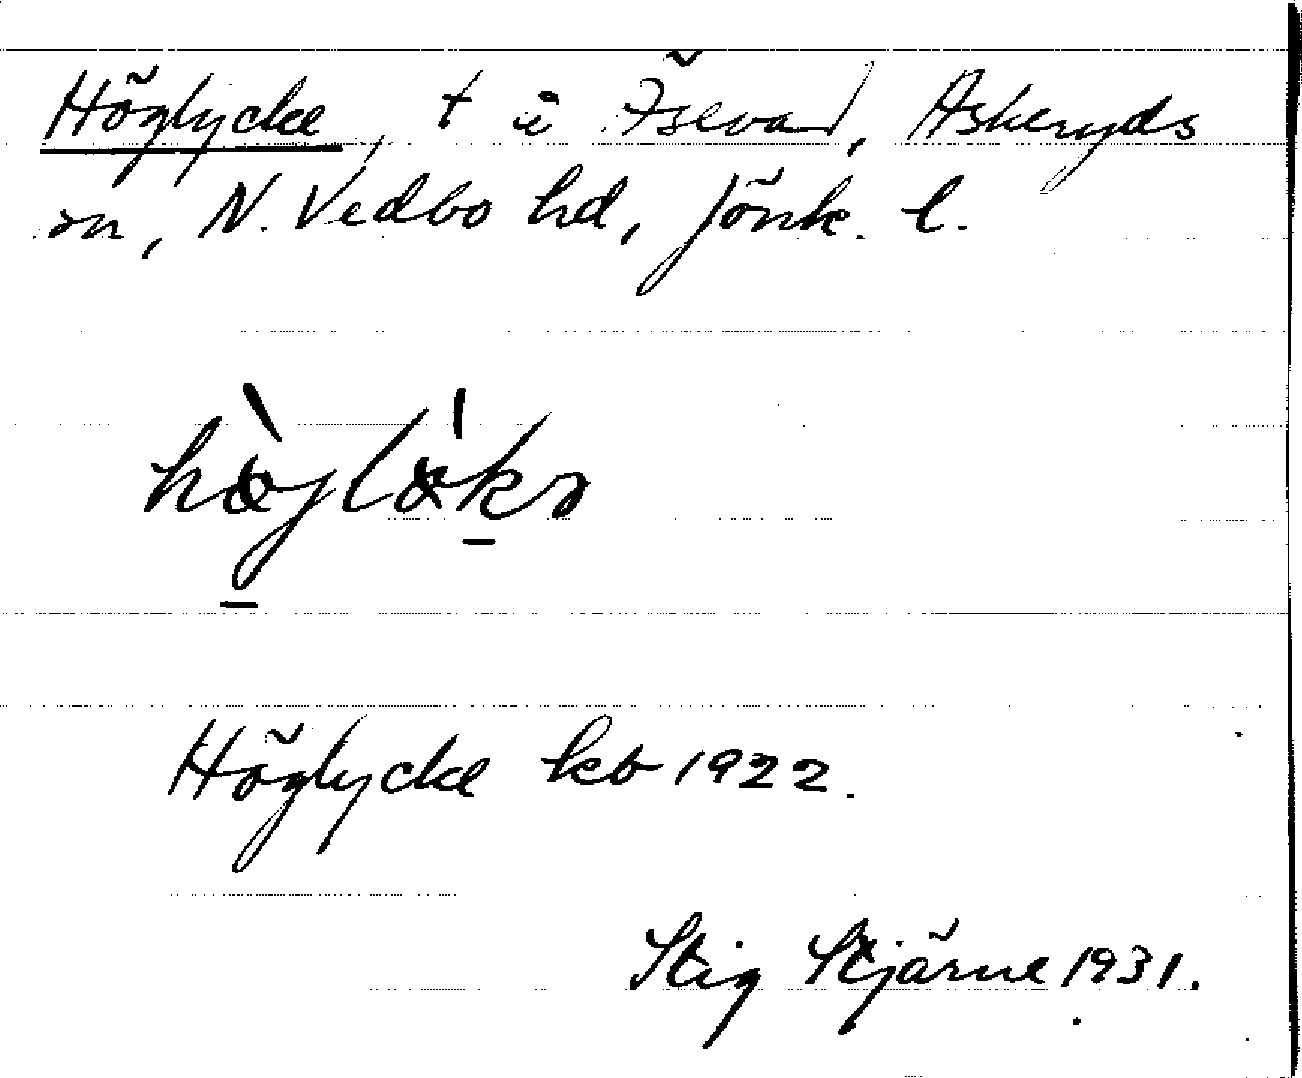 Höglycke, t i Äsevad, Askeryds
sn, N. Vedbo hd, Jönk. l.
hø̀jlø̍kə
Höglycke kb 1922.
Stig Stjärne 1931.